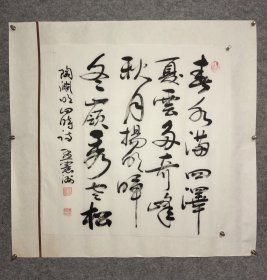 春水满四泽
夏雲多奇峰
秋月揚明暉
冬嶺秀孤松
陶渊明四時詩